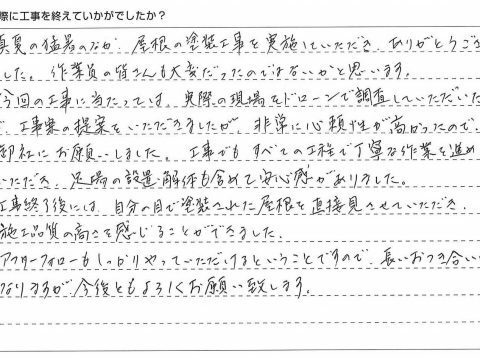 際に工事を終えていかがでしたか？
真夏の猛暑のなか、屋根の塗装工事を実施していただき、ありがとうござ
した。作業員の皆さんも大変だったのではないかと思います。
今回の工事に当たっては、実際の現場をドローンで調査していただいた
で、工事案の提案をいただきましたが、非常に信頼性が高かったので、
御社にお願いしました。工事でも すべての工程で丁寧な作業を進め
いただき、足場の設置・解体も含めて安心感がありました。
工事終了後には、自分の目で塗装された屋根を直接見させていただき、
施工品質の高さを感じることができました。
アフターフォローもしっかりやっていただけるということですので、長いおつき合い
なりますが今後ともよろしくお願い致します。